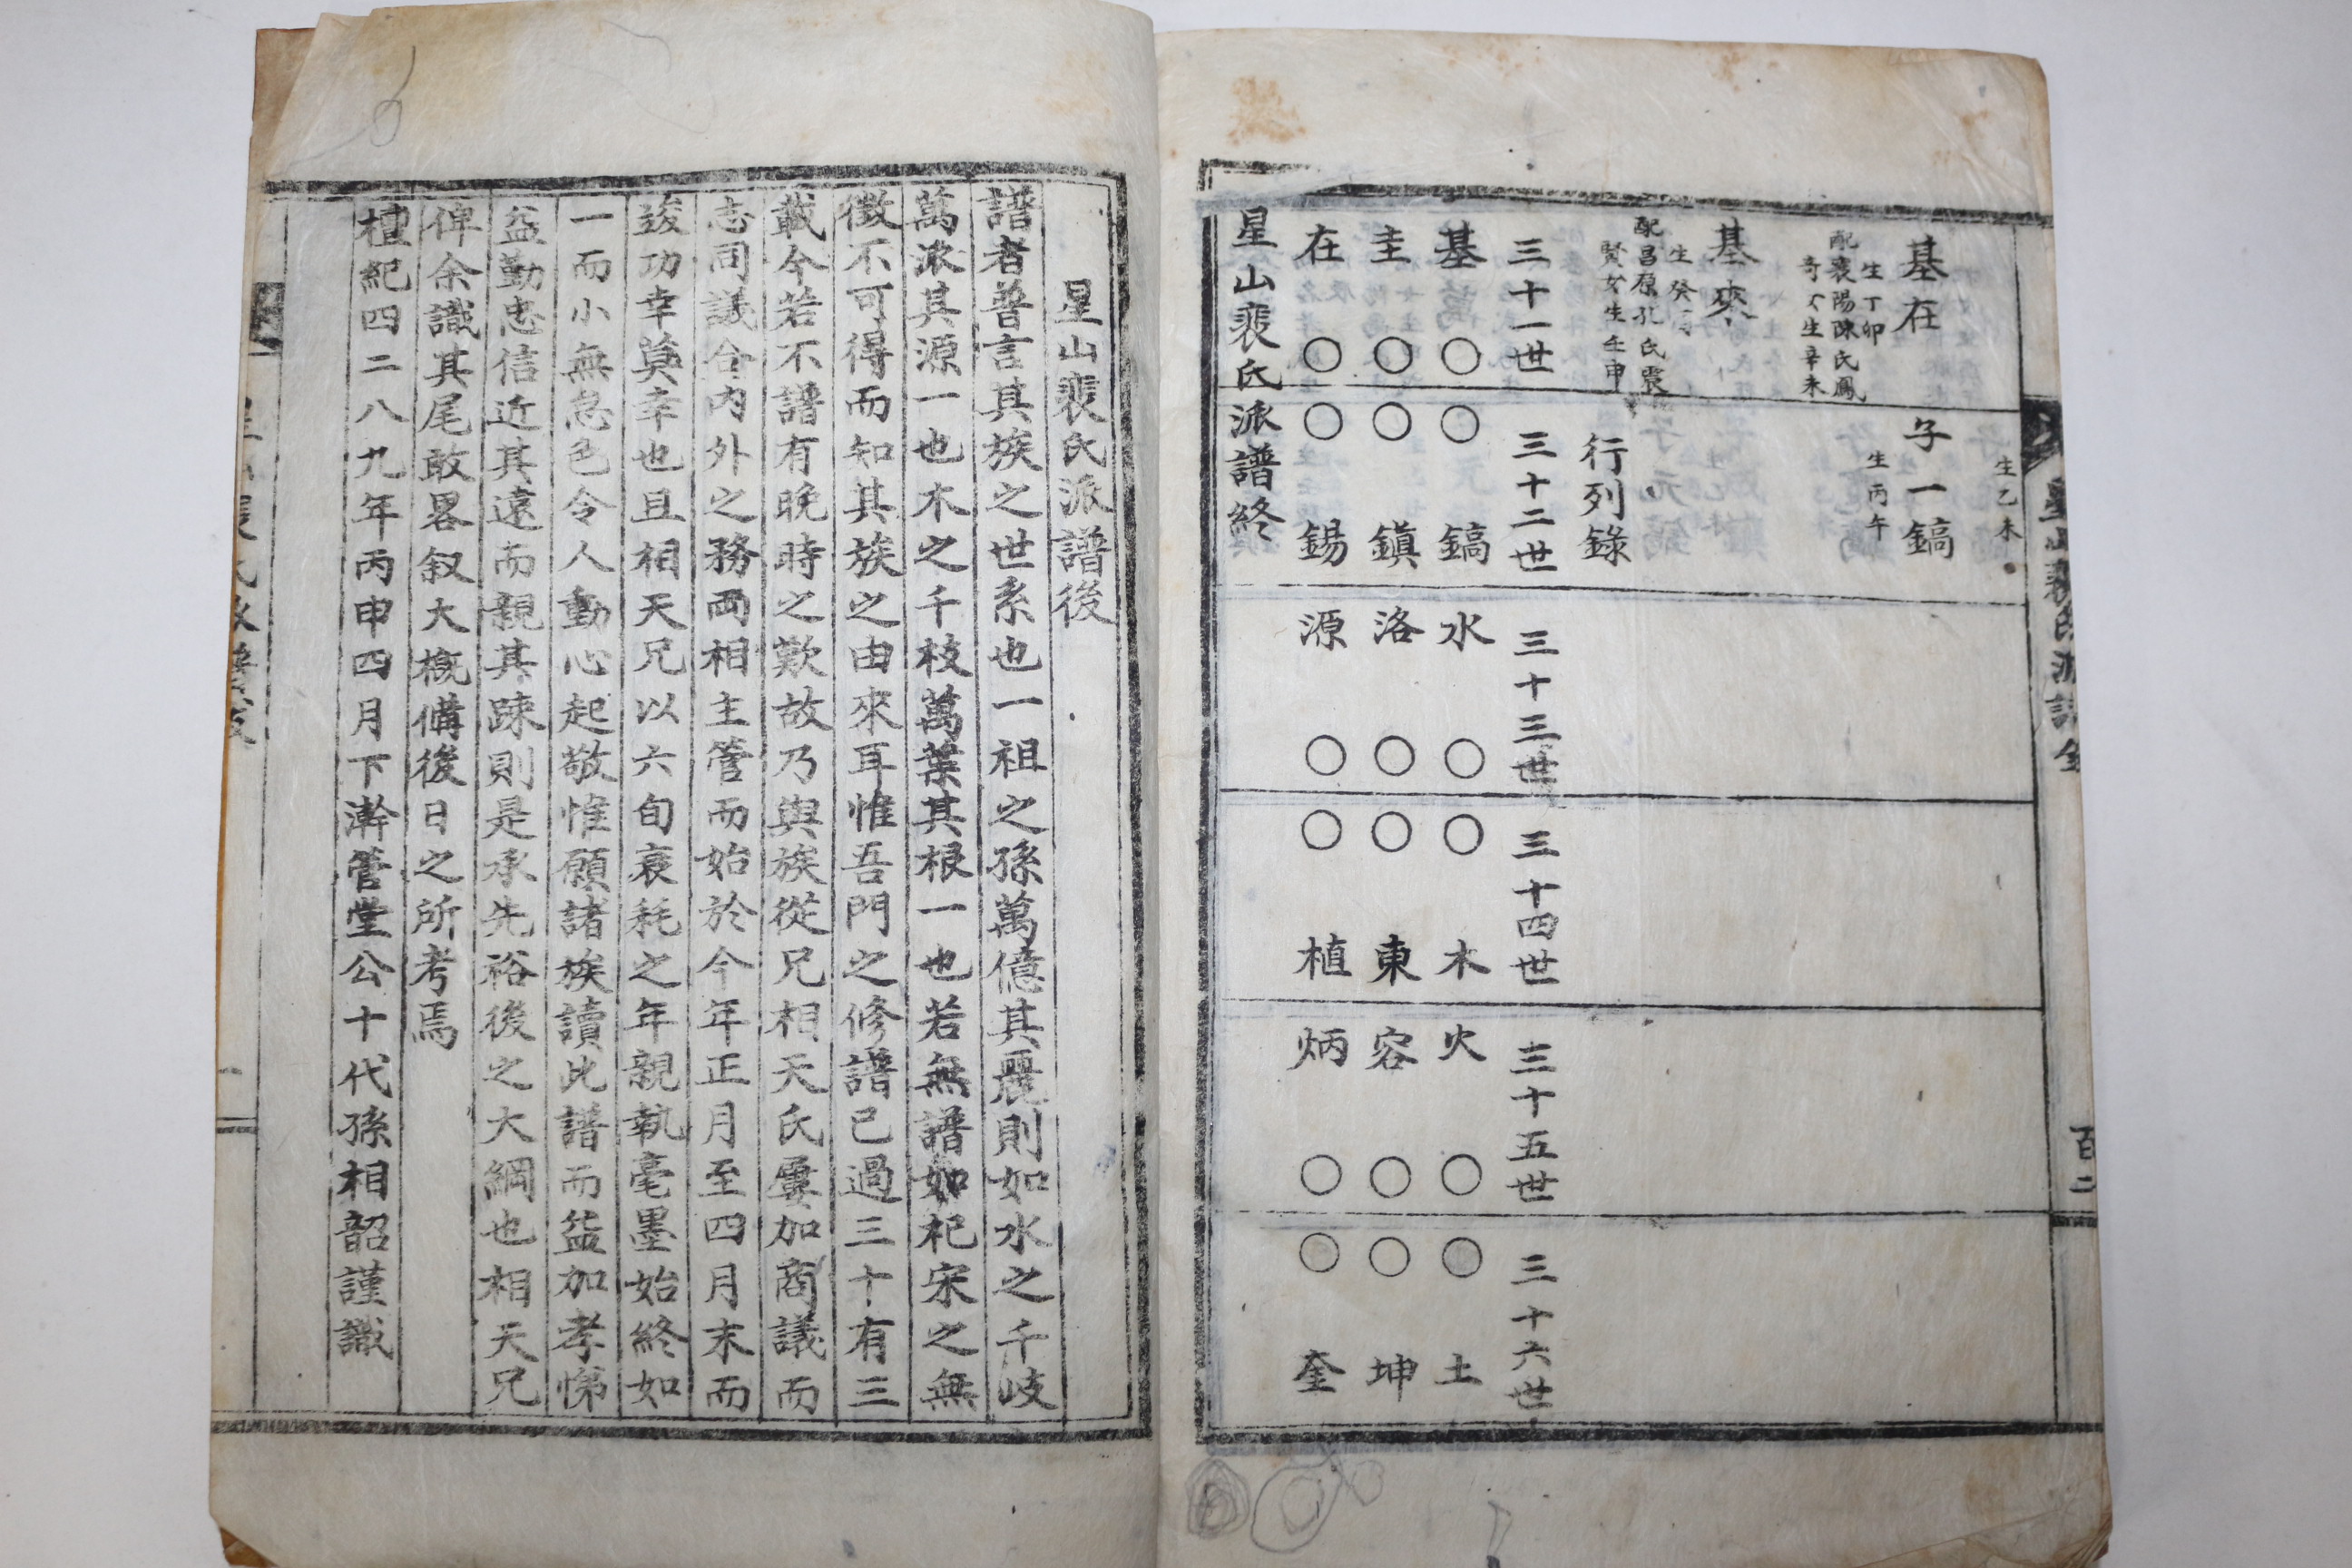 星山裵氏派譜全
百二
生乙未
基在
生丁卯
配襄陽陳氏鳳
奇女生辛未
子一鎬
生丙午
基來
生癸酉
配昌原孔氏震
賢女生壬申
行列錄
三十一世
三十二世
三十三世
三十四世
三十五世
三十六世
基○
○鎬
水○
○木
火○
○土
圭○
○鎭
洛○
○東
容○
○坤
在○
○錫
源○
○植
炳○
○奎
星山裵氏派譜終
星山裵氏派譜後
譜者普言其族之世系也一祖之孫萬億其麗則如水之千岐
萬派其源一也木之千枝萬葉其根一也若無譜如杞宋之無
徵不可得而知其族之由來耳惟吾門之修譜已過三十有三
載今若不譜有晚時之歎故乃與族從兄相天氏屢加商議而
志同議合內外之務兩相主管而始於今年正月至四月末而
竣功幸莫幸也且相天兄以六旬衰耗之年親執毫墨始終如
一而小無怠色令人動心起敬惟願諸族讀此譜而益加孝悌
益勤忠信近其遠而親其踈則是承先裕後之大綱也相天兄
俾余識其尾敢畧叙大槪備後日之所考焉
檀紀四二八九年丙申四月下澣管堂公十代孫相韶謹識